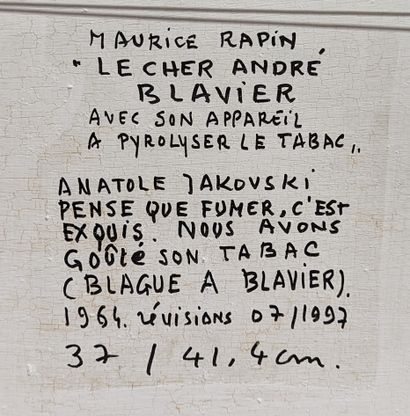 MAURICE RAPIN
" LE CHER ANDRÉ
BLAVIER
AVEC SON APPAREIL
A PYROLYSER LE TABAC,,
ANATOLE JAKOVSKI
PENSE QUE FUMER, C'EST
EXQUIS. NOUS AVONS
GOÛTÉ SON TABAC
(BLAGUE A BLAVIER).
1964. révisions 07/1997
37 / 41,4 cm.